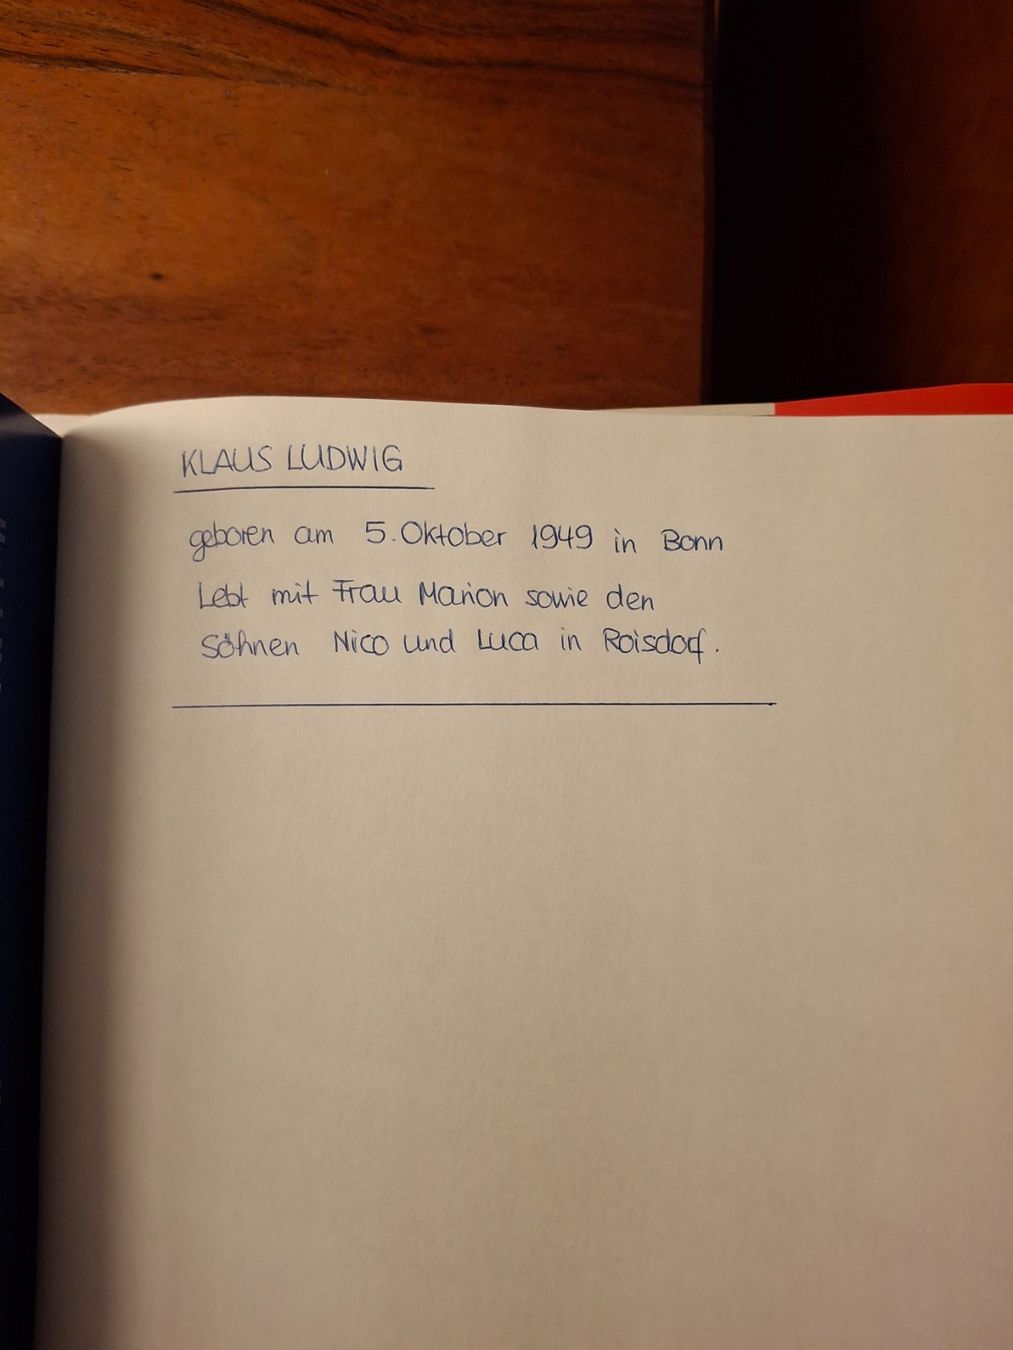 KLAUS LUDWIG
geboren am 5. Oktober 1949 in Bonn
Lebt mit Frau Marion sowie den
Söhnen Nico und Luca in Roisdorf.